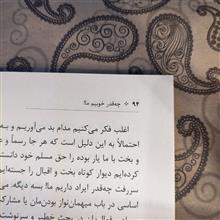 ۹۴ ❖ چه‌قدر خوبیم ما!
اغلب فکر می‌کنیم مدام بد می‌آوریم و سه
احتمالاً به این دلیل است که هر جا رسماً و
و بخت با ما یار بوده را حق مسلم خود دانست
کرده‌ایم دیوار کوتاه بخت و اقبال را جسته‌ایم
سررفت چه‌قدر ایراد داریم ما! بسه دیگه. می
اساسی در باب میهمان‌نواز بودن‌مان یا مشارک
بحث خطیر و سرنوشت